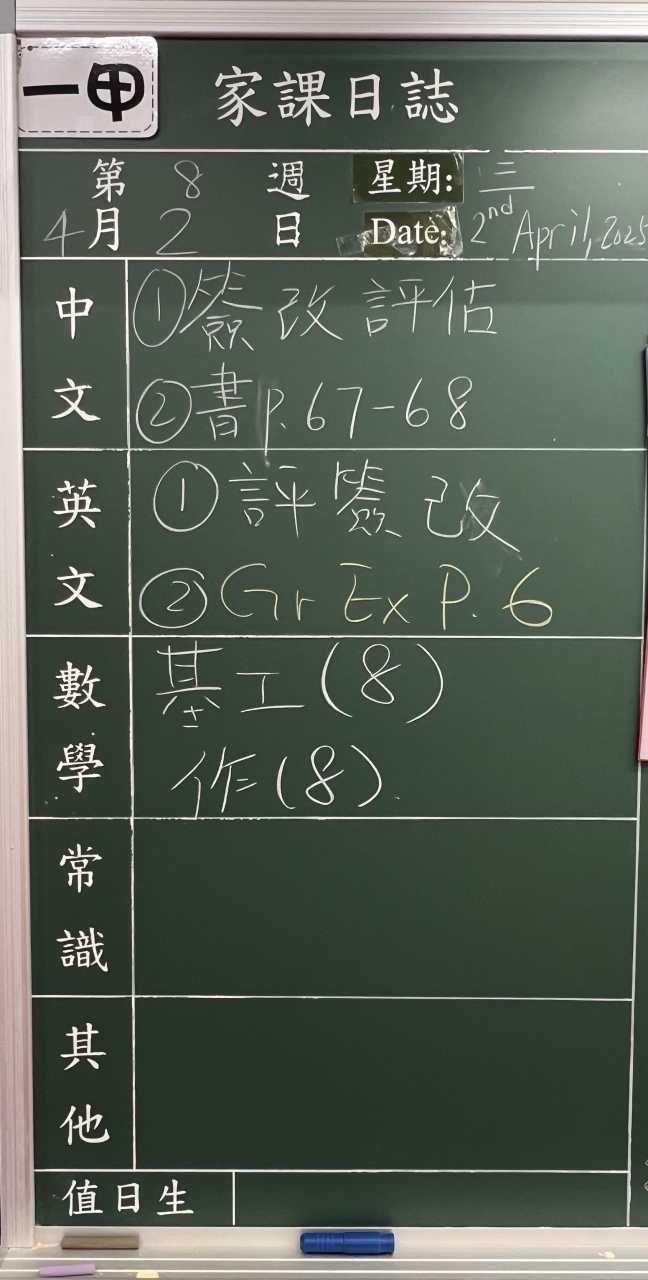 一甲 家課日誌
第 8 週 星期: 三
4月 2 日 Date: 2nd April, 2025
中文
①簽改評估
②書P.67-68
英文
①評簽改
②Gr Ex P. 6
數學
基工(8)
作(8)
常識
其他
值日生